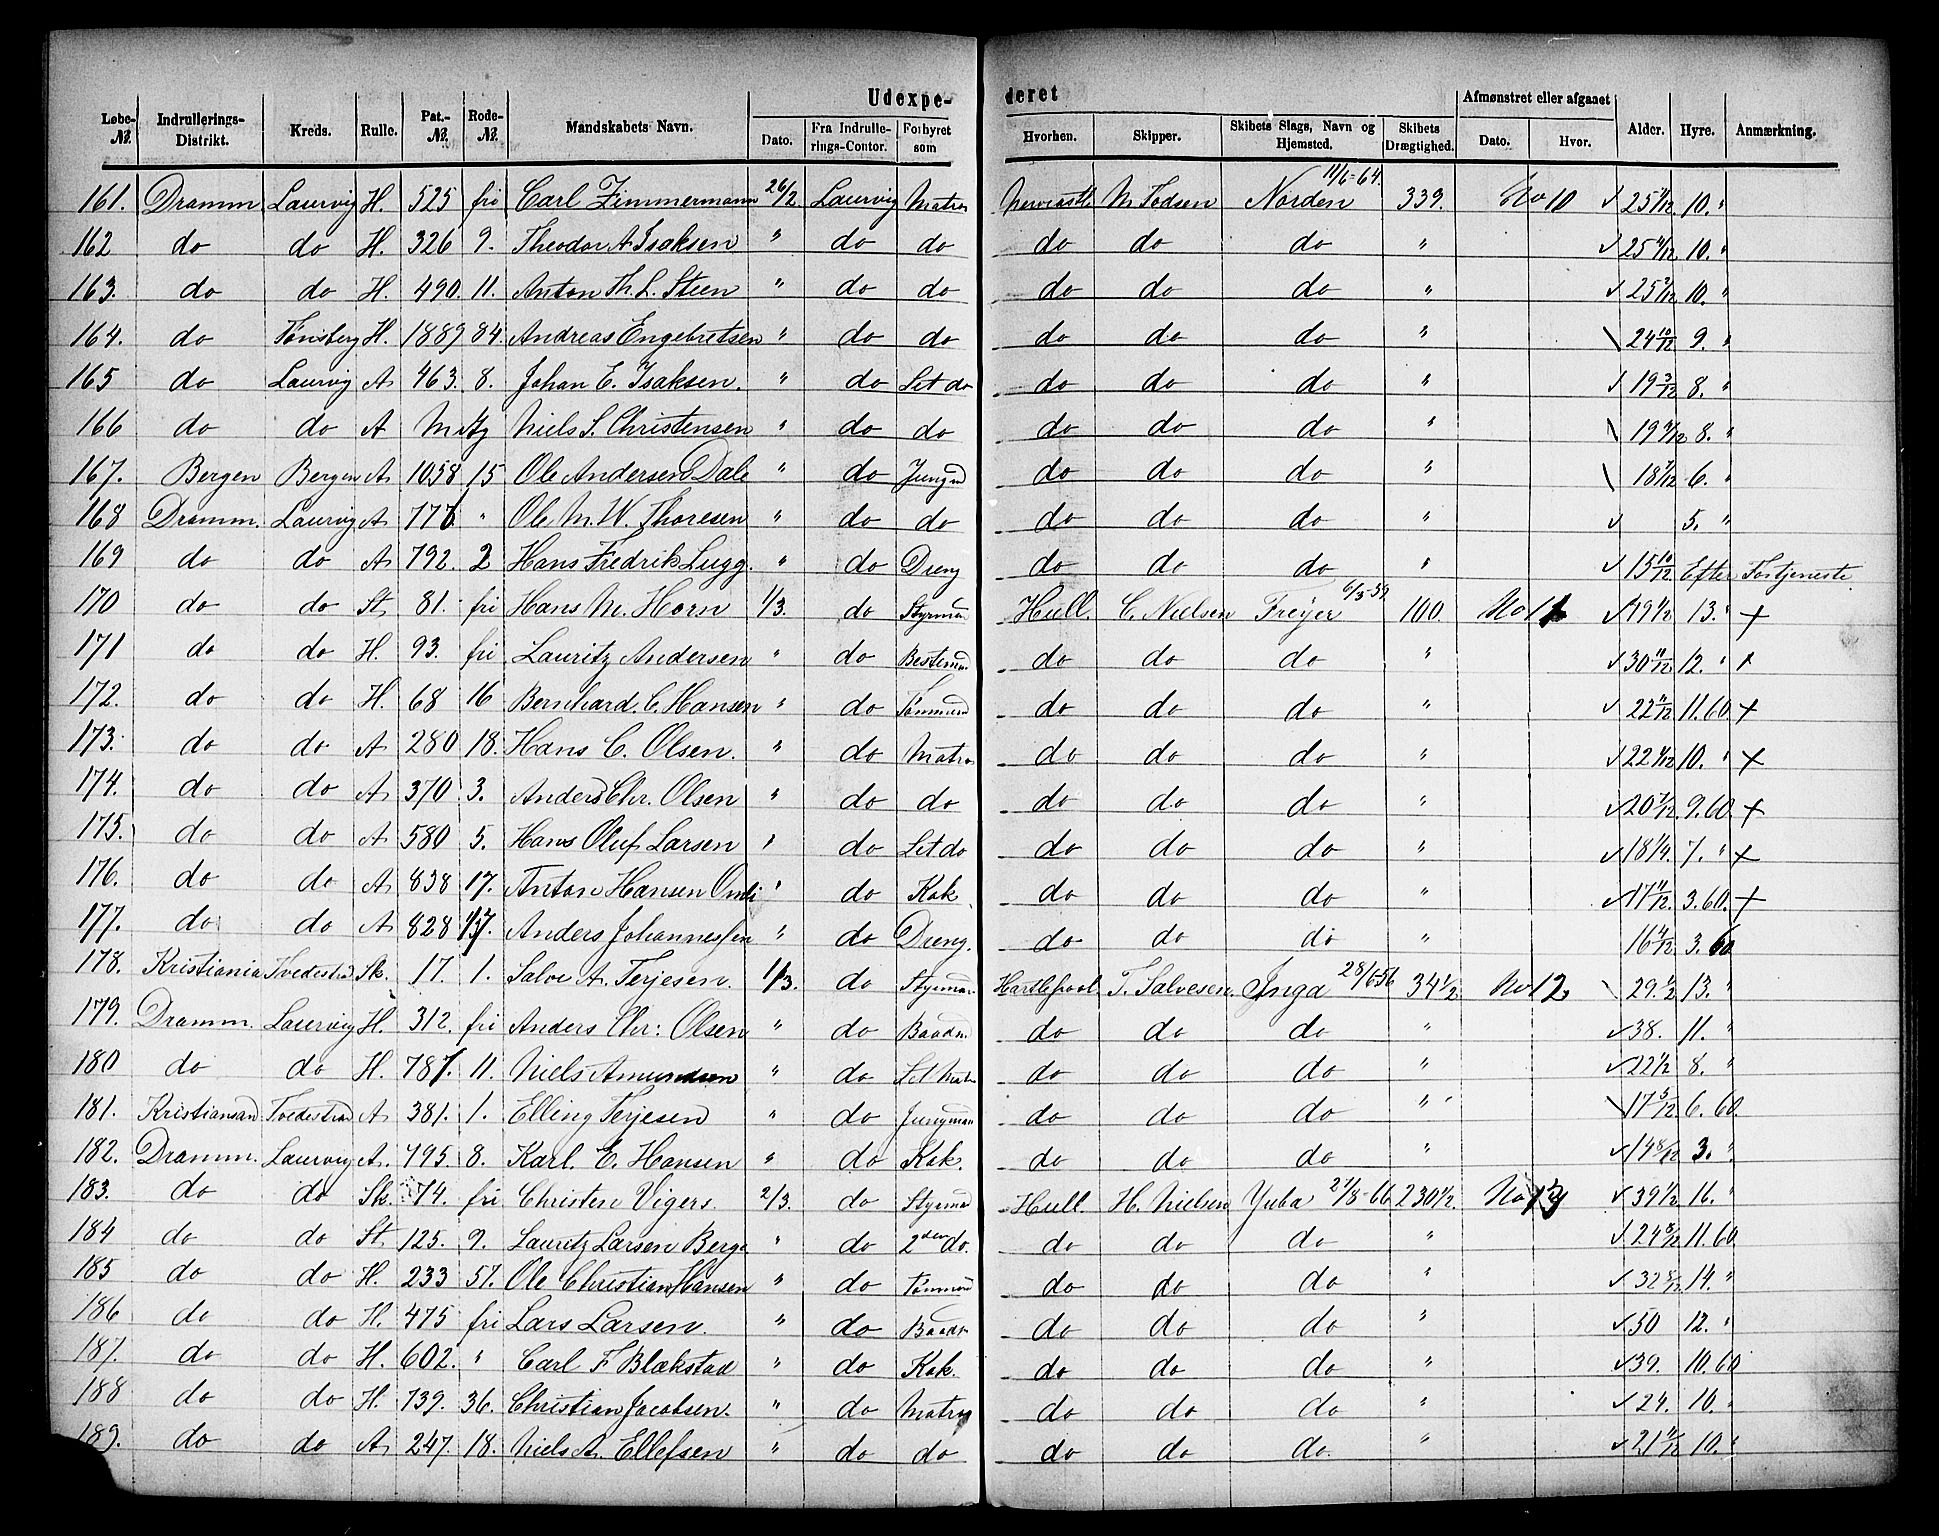 Udexpe- deret
Løbe- №. Indrullerings- Distrikt. Kreds. Rulle. Pat.- №. Rode- №. Mandskabets Navn. Dato. Fra Indrulle- rings-Contor. Forhyret som Hvorhen. Skipper. Skibets Slags, Navn og Hjemsted. Skibets Drægtighed. Afmønstret eller afgaaet Dato. Hvor. Alder. Hyre. Anmærkning.
161. Dramm Laurvig H. 525 fri Carl Zimmermann 26/2 Laurvig Matro Newcastle M Todsen Norden 11/6-64. 339. No 10 √ 25 11/12 10. "
162 do do H. 326 9. Theodor A. Isaksen " do do do do do " √ 25 11/12 10. "
163. do do H. 490. 11. Anton Th. L. Steen " do do do do do " √ 25 2/12 10. "
164. do Tønsberg H. 1889 84. Andreas Engebretsen " do do do do do " \ 24 10/12 9. "
165 do Laurvig A 463. 8. Johan E. Isaksen. " do Let do do do do " √ 19 3/12 8. "
166 do do A Niels S. Christensen " do do do do do " \ 19 8. "
167. Bergen Bergen A 1058 15 Ole Andersen Dale " do Jungd do do do " \ 18 7/12 6. "
168 Dramm. Laurvig A 777. " Ole M. W. Thoresen " do do do do do " √ 5. "
169 do do A 792. 2 Hans Fredrik Lugg. " do Dreng do do do " √ 15 10/12 Efter Fortjeneste
170 do do St. 81. fri Hans M. Horn 1/3. do Styrmd Hull. C. Nielsen Freyer 6/3-59 100. No 11 √ 19 1/2 13. " +
171 do do H. 93. fri Lauritz Andersen " do Bestemd do do do " √ 30 11/12 12. " +
172. do do H. 68 16 Bernhard C. Hansen " do Tømmd do do do " √ 22 11/12 11.60 +
173. do do A 280 18. Hans C. Olsen. " do Matro do do do " √ 22 1/12 10. " +
174. do do A 370 3. Anders Chr. Olsen " do do do do do " √ 20 7/12 9.60. +
175. do do A 580 5. Hans Oluf Larsen " do Let do do do do " √ 18 1/4. 7. " +
176. do do A 838 17. Anton Hansen Omli " do Kok do do do " √ 17 11/12. 3.60. +
177. do do A 828 Anders Johannessen " do Dreng. do do do " 16 4/12 3.60
178. Kristiania Tvedestrd Sk. 17. 1. Salve A. Terjesen. 1/3. do Styrman Hartlepool. T. Salvesen Inga 28/6-56 34 1/2 No 12 \ 29. 1/2 13. "
179. Dramm. Laurvig H. 312. fri Anders Chr: Olsen " do Baadm do do do " √ 38. 11. "
180 do do H. 787. 11. Niels Amundsen " do Let Matr do do do " √ 22 1/2 8. "
181. Kristiansand Tvedestrand A 381. 1. Elling Terjesen " do Jungman do do do " \ 17 5/12 6.60.
182. Dramm. Laurvig A. 795. 8. Karl. E. Hansen " do Kok. do do do " √ 14 8/12 3. "
183. do do Sk. 74. fri Christen Vigers. 2/3. do Styrmd Hull. H. Nielsen Yuba 27/8-66 230 1/2. No 13 √ 39 1/2 16. "
184 do do St. 125. 9. Lauritz Larsen Berge " do 2den do. do do do " √ 24 8/12 11.60
185 do do H. 233 51. Ole Christian Hansen " do Tømmd do do do " √ 32 8/12 14. "
186 do do H. 475 fri Lars Larsen. " do Baadm do do do " √ 50 12. "
187. do do H. 602. " Carl F Blakstad " do Kok. do do do " √ 39. 10.60
188 do do H. 739. 36. Christian Jacobsen. " do Matros do do do " √ 24. 10. "
189. do do A 247. 18. Niels A. Ellefsen " do do do do do. " √ 21 11/12 10. "